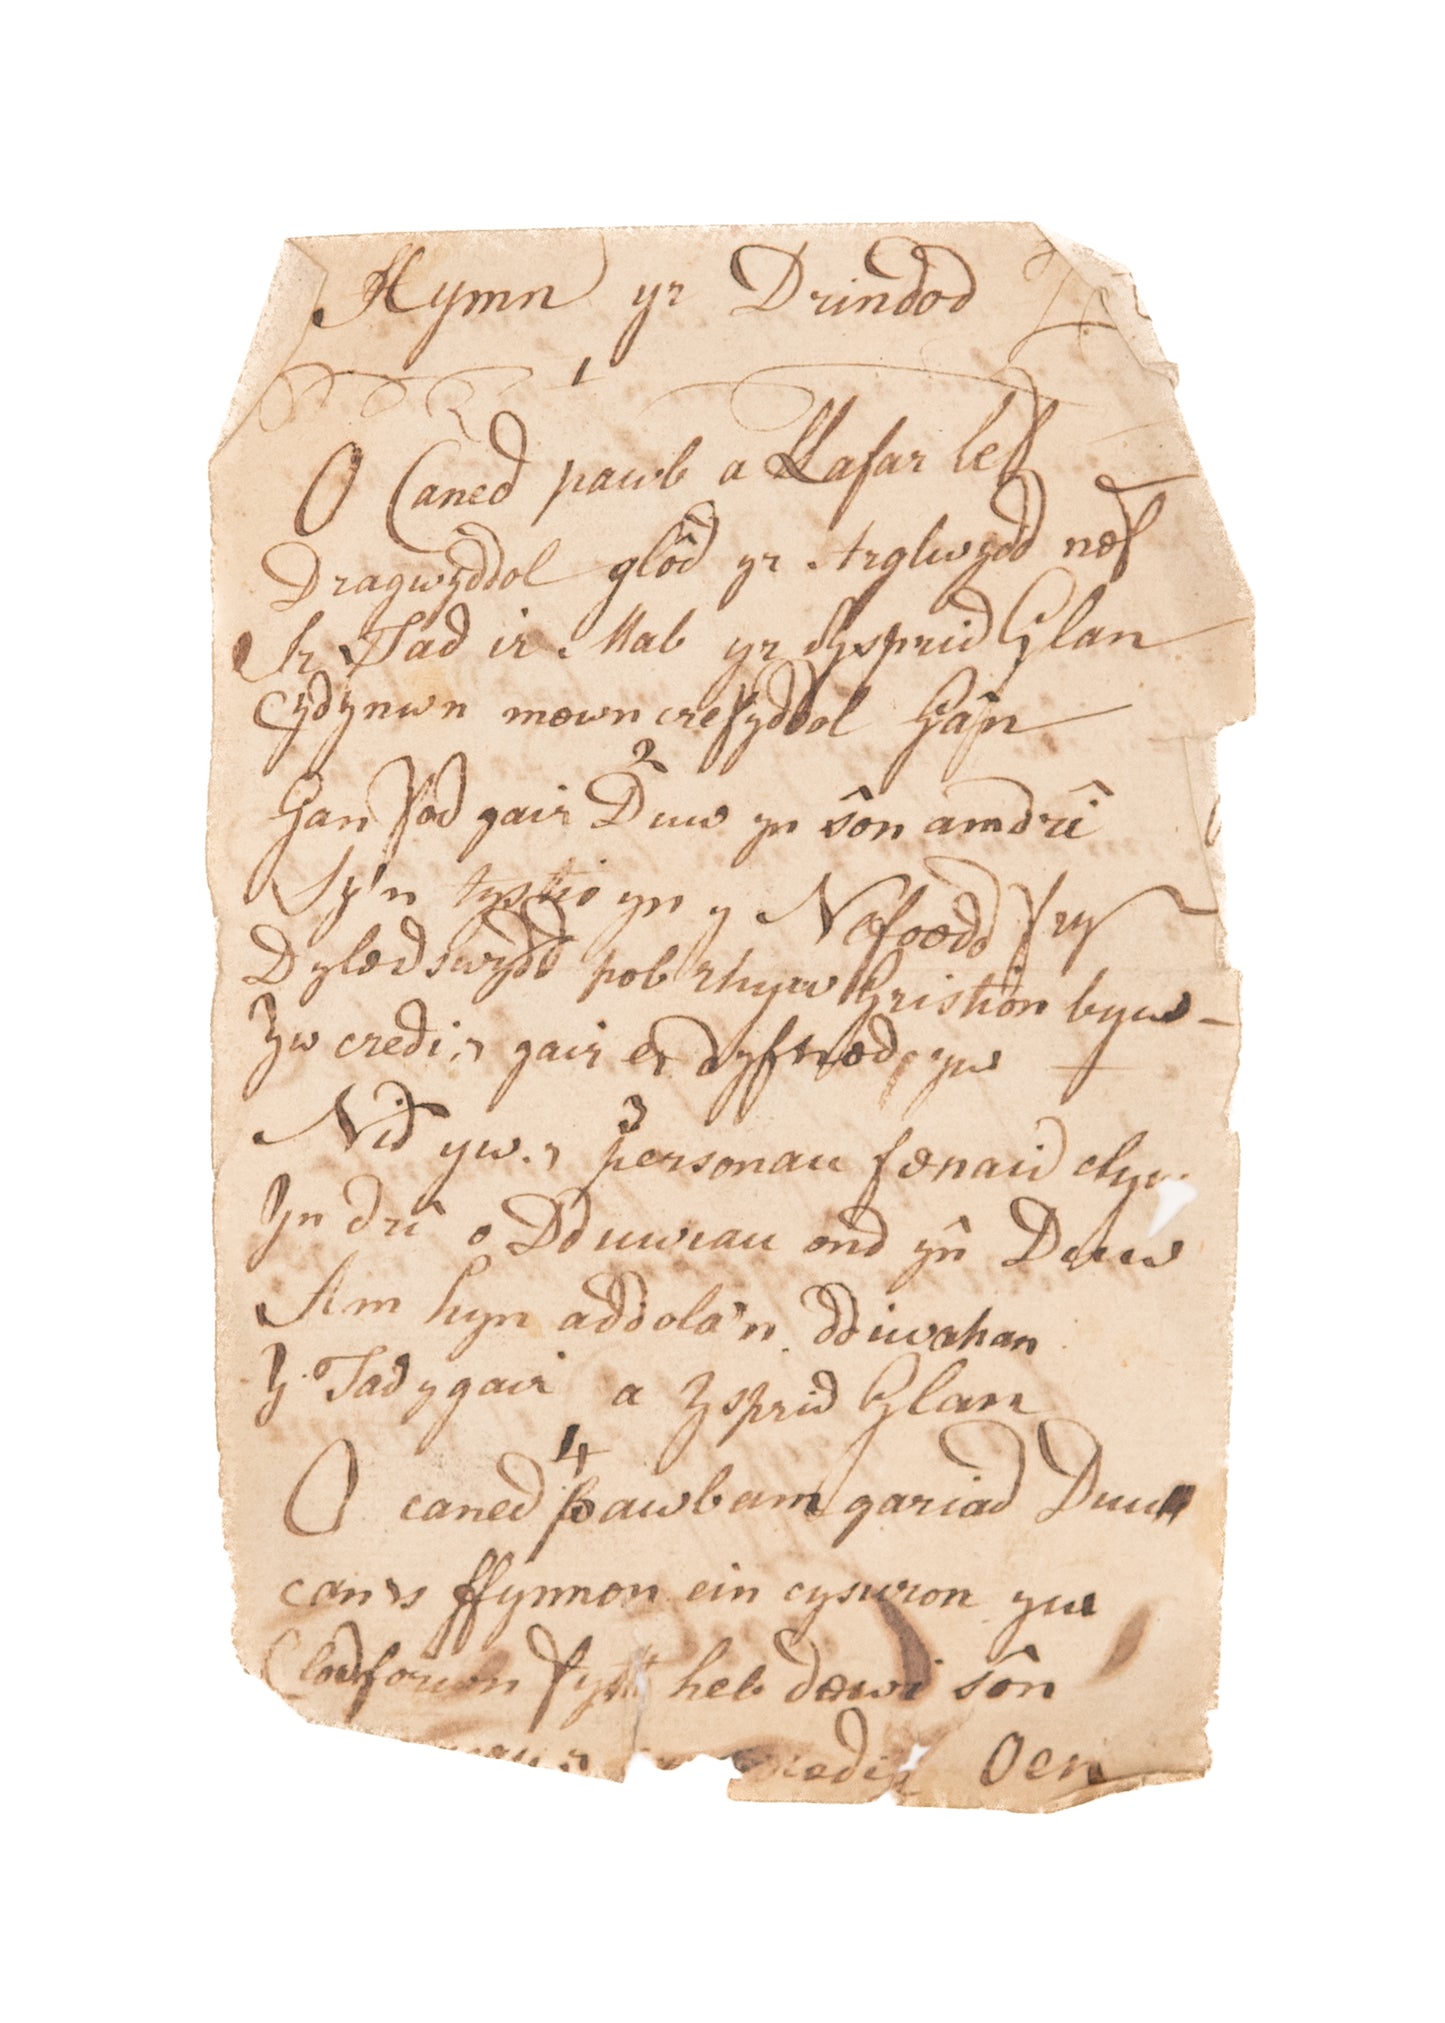 Hymn yr Drindod
1
O Caned pawb a Llafar lef
Dragwyddol glôd yr Arglwydd nef
Ir Tad ir Mab yr Yysprid Glan
Cydynwn mewn crefyddol Gân
2
Gan fod gair Duw yn sôn amdrî
Sy'n tystio yn y Nefoedd fry
Dyledswydd pob rhyw Gristion byw
Yw credi'r gair er dyfned yw
3
Nid yw'r personau fenaid clyw
Yn drî o Dduwiau ond yn Duw
Am hyn addola'n ddiwahan
Y Tad y gair a Ysprid Glan
4
O caned pawb am gariad Duw
canys ffynnon ein cyswron yw
Clodforwn fyth heb dewi sôn
Oen